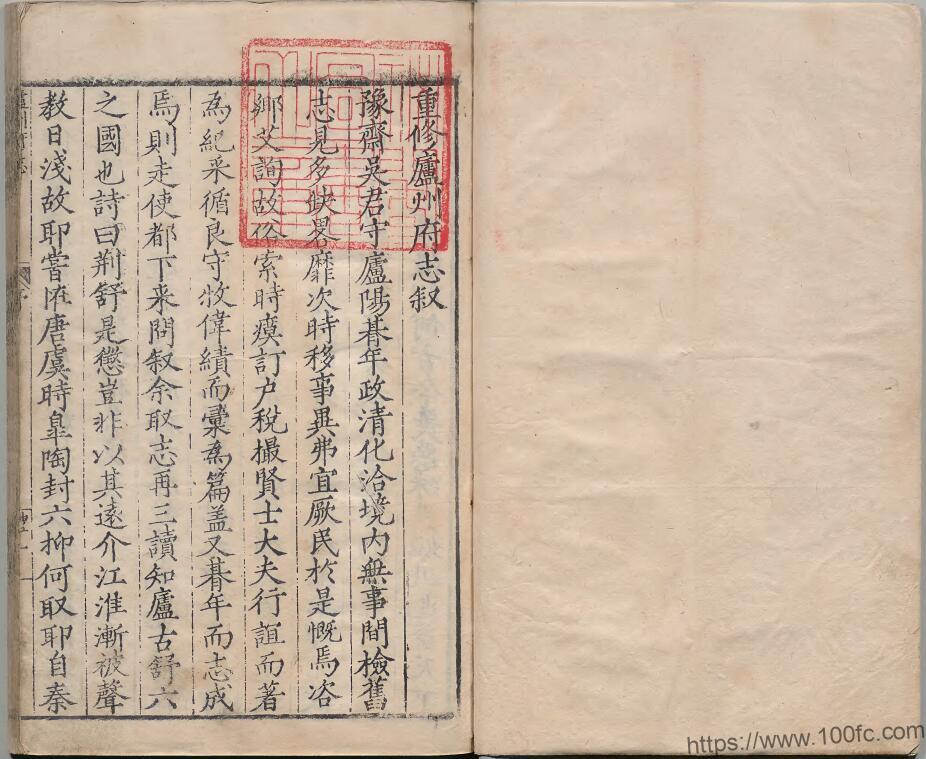 重修廬州府志叙
豫齋吳君守廬陽朞年政清化洽境内無事間檢舊
志見多缺畧靡次時移事異弗宜厥民於是慨焉咨
鄉艾詢故俗索時瘼訂户稅撮賢士大夫行誼而著
為紀采循良守牧偉績而彙為篇盖又朞年而志成
焉則走使都下来問叙余取志再三讀知廬古舒六
之國也詩曰荆舒是懲豈非以其遠介江淮漸被聲
教日淺故耶嘗陋唐虞時臯陶封六抑何取耶自秦
https://www.100fc.com